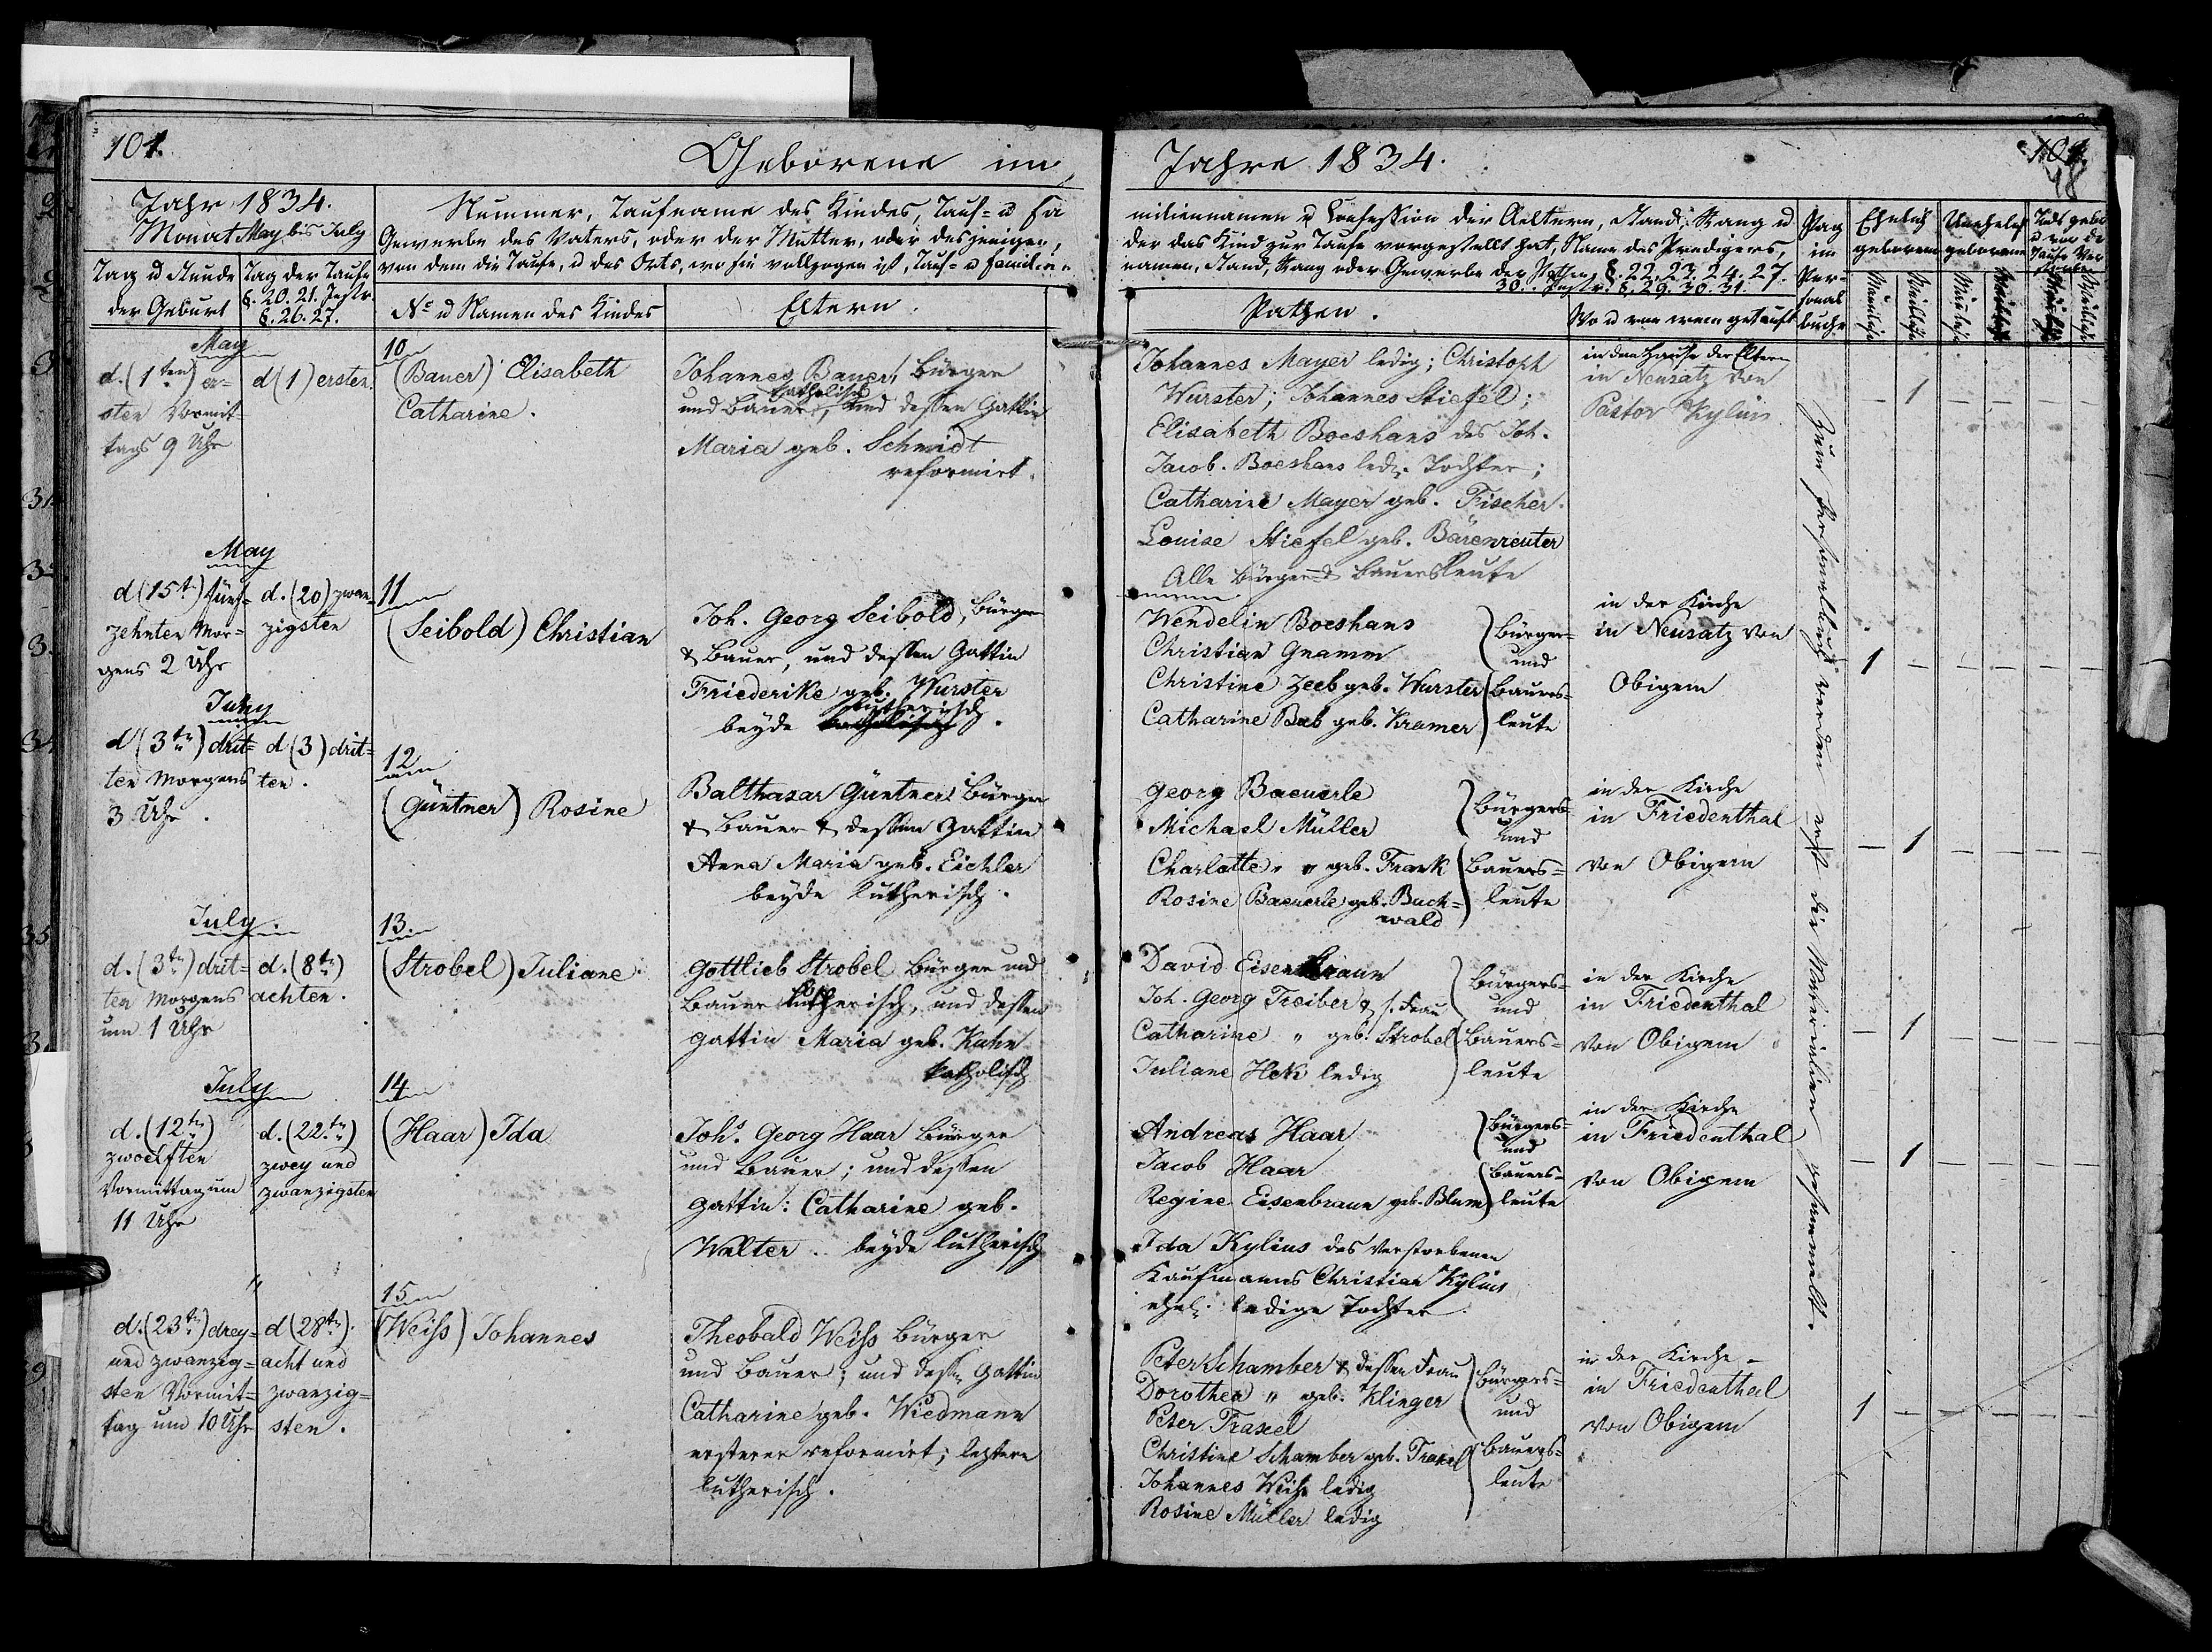 101.
Geborene im
Jahr 1834.
Monat May bis July
Nummer, Taufname des Kindes, Tauf- u Fa
Gewerbe des Vaters, oder der Mutter, oder desjenigen,
von dem die Taufe, u des Orts, wo sie vollzogen ist, Tauf- u Familien
Tag u Stunde
der Geburt
Tag der Taufe
§. 20. 21. Instr.
§. 26. 27.
No u Namen des Kindes
Eltern.
May
d. (1ten) er-
sten Vormit-
tags 9 Uhr
d (1) ersten.
10
(Bauer) Elisabeth
Catharine.
Johannes Bauer, Bürger
catholisch
und Bauer, und dessen Gattin
Maria geb. Schmidt
reformirt.
May
d (15t) fünf-
zehnten Mor-
gens 2 Uhr
d. (20) zwan-
zigsten
11
(Seibold) Christian
Joh. Georg Seibold, Bürger
& Bauer, und dessen Gattin
Friederike geb. Wurster
lutherisch
beyde katholisch.
Juny
d (3tn) drit-
ten Morgens
3 Uhr.
d (3) drit-
ten.
12
(Güntner) Rosine
Balthasar Güntner Bürger
& Bauer & dessen Gattin
Anna Maria geb. Eichler
beyde lutherisch.
July
d. (3tn) drit-
ten Morgens
um 1 Uhr
d. (8tn)
achten.
13
(Strobel) Juliane
Gottlieb Strobel Bürger und
Bauer lutherisch, und dessen
Gattin Maria geb. Kuhn
katholisch
July
d. (12tn)
zwoelften
Vormittag um
11 Uhr
d. (22tn)
zwey und
zwanzigsten
14
(Haar) Ida
Johs. Georg Haar Bürger
und Bauer; und dessen
Gattin: Catharine geb.
Walter. beyde lutherisch
"
d. (23tn) drey-
und zwanzig-
sten Vormit-
tag um 10 Uhr
d (28tn).
acht und
zwanzig-
sten.
15
(Weiss) Johannes
Theobald Weiss Bürger
und Bauer; und dessn Gattin
Catharine geb. Wiedmann
ersterer reformirt; leztere
lutherisch.
Jahre 1834.
101
48
miliennamen u Confession der Aeltern, Stand, Rang u
der das Kind zur Taufe vorgestellt hat, Name des Predigers,
namen, Stand, Rang oder Gewerbe der Pathen §. 22. 23. 24. 27.
30. Instr. §. 29. 30. 31.
Pathen.
Wo u von wem getauft
Pag
im
Per-
sonal
buche
Ehelich
geboren
Unehelich
geborene
Todt gebor
u vor der
Taufe Ver
storben
Männlich
Weiblich
Männlich
Weiblich
Männlich
Weiblich
Johannes Mayer ledig; Christoph
Wurster; Johannes Stiefel;
Elisabeth Boeshans des Joh.
Jacob. Boeshans led. Tochter;
Catharine Mayer geb. Fischer.
Louise Stiefel geb. Bärenreuter
Alle Bürger- & Bauersleute
in dem Hause der Eltern
in Neusatz von
Pastor Kylius
— 1 — — — —
Wendelin Boeshans
Christian Gnamm
Christine Zeeb geb. Wurster
Catharine Bub geb. Kramer
Bürger-
und
Bauers-
leute
in der Kirche
in Neusatz von
Obigem
1 — — — — —
Georg Baeuerle
Michael Müller
Charlotte " " geb. Frank
Rosine Baeuerle geb. Buch-
wald
Bürgers-
und
Bauers-
leute
in der Kirche
in Friedenthal
von Obigem
— 1 — — — —
David Eisenbraun
Joh. Georg Treiber & s. Frau
Catharine " geb. Strobel
Juliane Hek ledig
Bürgers-
und
Bauers-
leute
in der Kirche
in Friedenthal
von Obigem
— 1 — — — —
Andreas Haar
Jacob Haar
Regine Eisenbraun geb. Blum
Bürgers-
und
Bauers-
leute
Ida Kylius des verstorbenen
Kaufmanns Christian Kylius
ehel. ledige Tochter.
in der Kirche
in Friedenthal
von Obigem
— 1 — — — —
Peter Schamber & dessen Frau
Dorothea " geb. Klinger
Peter Traxel
Christine Schamber geb. Traxel
Johannes Weiss ledig
Rosine Müller ledig
Bürgers-
und
Bauers-
leute
in der Kirche
in Friedenthal
von Obigem
1 — — — — —
Zum Personalbuch werden erst die Materialien gesammelt.